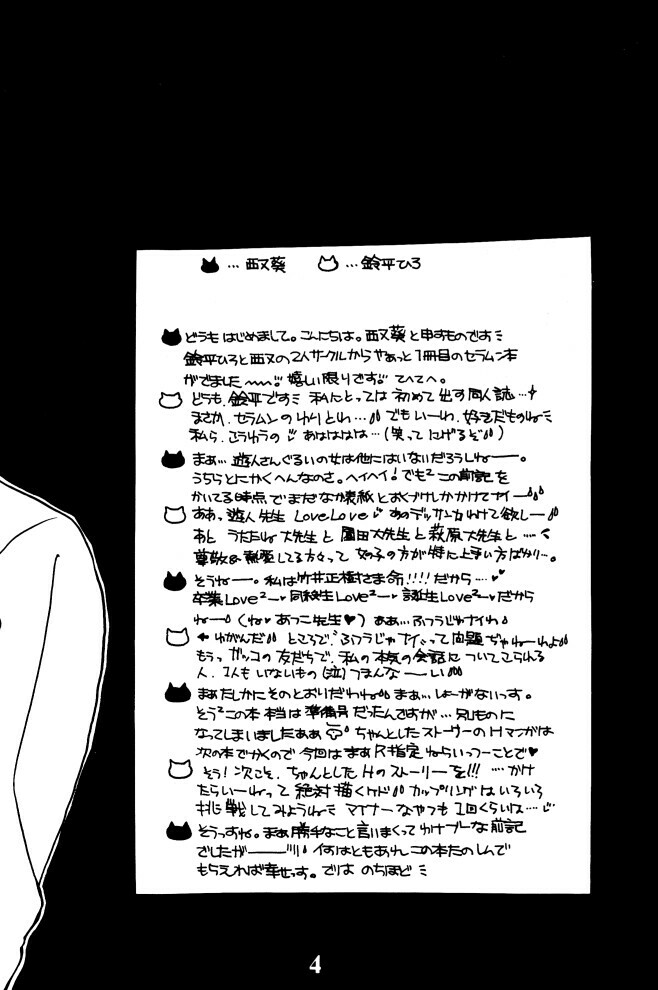 …西又葵 …鈴平ひろ
どうも はじめまして。こんにちは。西又葵と申すものです
鈴平ひろと西又の2人サークルからやぁっと1冊目のセラムン本
がでました〜〜!! 嬉しい限りです!! てへてへ。
どうも、鈴平です 私にとっては 初めて 出す 同人誌…
まさか、セラムンの とは… でも いーわ、好きだものね
私ら、こうゆうの あははははは…(笑って にげるぞ)
まぁ… 遊人さんぐるいの女は他にはいないだろうしねー。
うちらとにかくへんなのさ。ヘイヘイ! でも² この前記を
かいてる時点で まだ おくづけしか かけてナイー
ああっ 遊人先生 LoveLove あのデッサン力 わけて欲しー
あと うたたね大先生と 園田大先生と 萩原大先生と……
尊敬&熱愛してる方々って 女の子の方が 特に上手い方ばかり…。
そうねー。私は竹井正樹さま命!!!! だから…
卒業Love²ー 同級生Love²ー 誕生Love²ー だから
ねー (ね あつこ先生♥) ああ… ふつうじゃナイわ
← ゆがんだ ところで、ふつうじゃナイって 問題じゃねーわよ
もうっ ガッコの友だちで、私の本気の会話に ついてこられる
人、1人もいないもの (泣) つまんなーーい
まぁたしかにそのとおりだわね まぁ… しょーがないっす。
そう² この本 本当は 準備号だったんですが… 別ものに
なってしまいましたああ ちゃんとしたストーリーのHマンガは
次の本でかくので 今回は まぁ R指定ねらいっつーことで♥
そう! 次こそ、ちゃんとした Hのストーリーを!!! …かけ
たらいーねって 絶対描くケド カップリングは いろいろ
挑戦してみようね マイナーなやつも 1回くらいは…
そうっすね。まぁ 勝手なこと言いまくって な前記
でしたがーー!! 何はともあれ この本たのしんで
もらえれば幸せっす。では のちほど
4